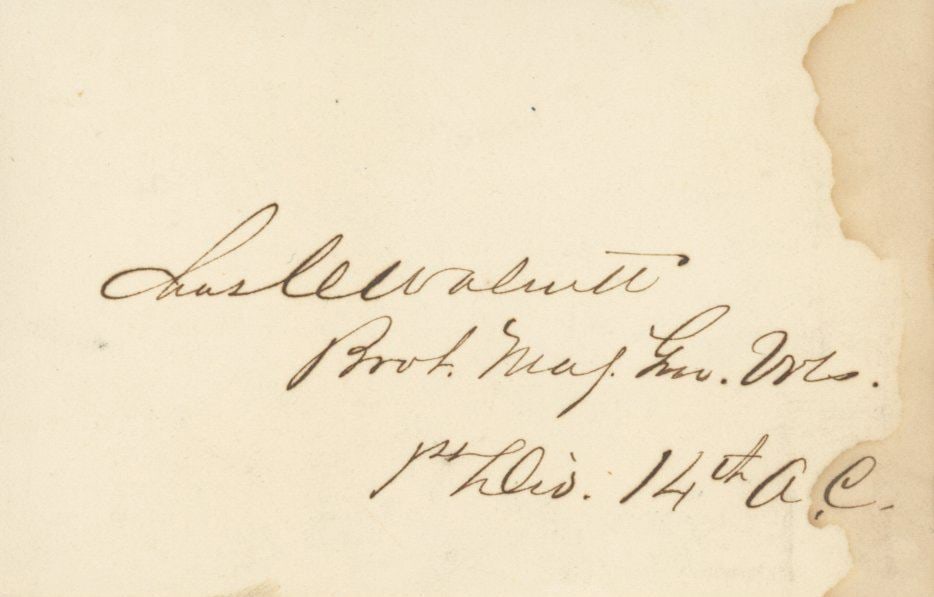 Chas C Walcutt
Brvt. Maj. Gen. Vols.
1st Div. 14th A.C.